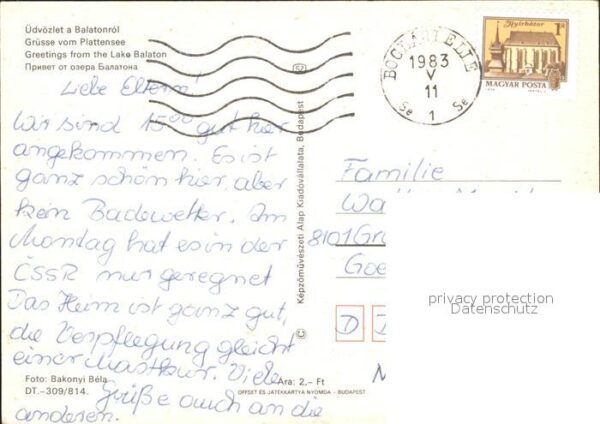 Üdvözlet a Balatonról
Grüsse vom Plattensee
Greetings from the Lake Balaton
Привет от озера Балатона
Liebe Eltern!
Wir sind 15⁰⁰ gut hier
angekommen. Es ist
ganz schön hier, aber
kein Badewetter. Im
Montag hat es in der
ČSSR nur geregnet
Das Heim ist ganz gut,
die Verpflegung gleicht
einer Mastkur. Viele
Grüße auch an die
anderen.
Foto: Bakonyi Béla
DT.–309/814.
Ára: 2,– Ft
OFFSET ÉS JÁTÉKKÁRTYA NYOMDA – BUDAPEST
© Képzőművészeti Alap Kiadóvállalata, Budapest
52
1983
V
11
Se 1 Se
Nyírbátor
1Ft
MAGYAR POSTA
Familie
Wa
8101 Gr
Goe
D
privacy protection
Datenschutz